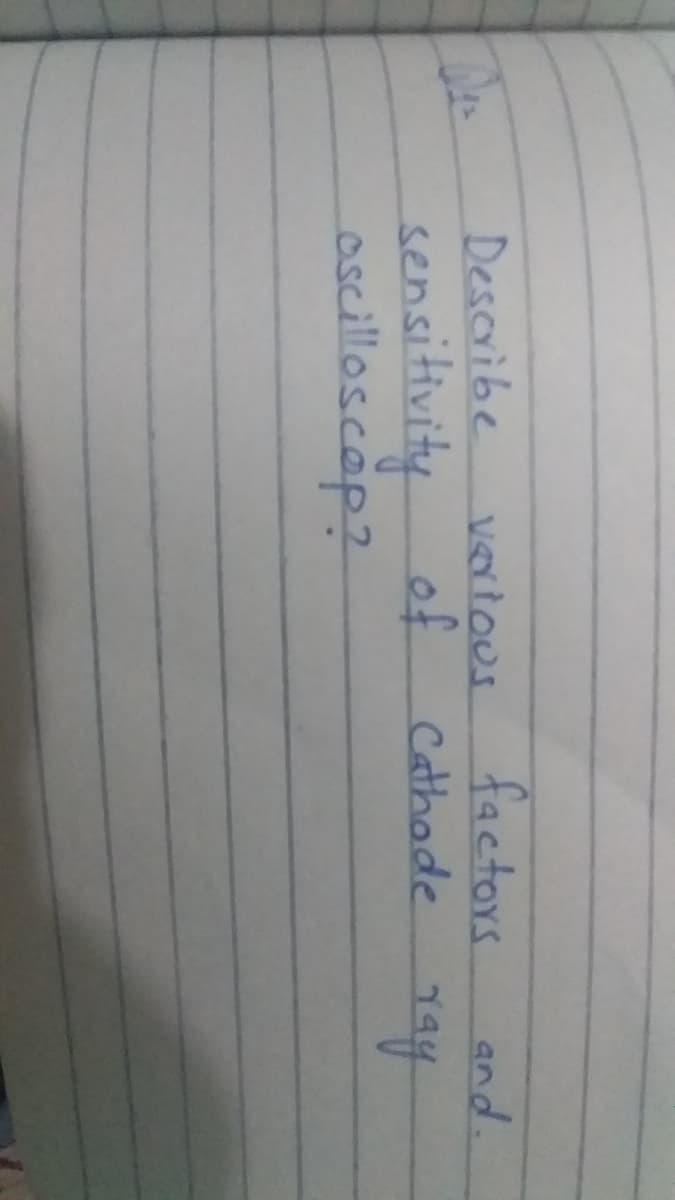 Q1: Describe various factors and.
sensitivity of Cathode ray
oscilloscop?